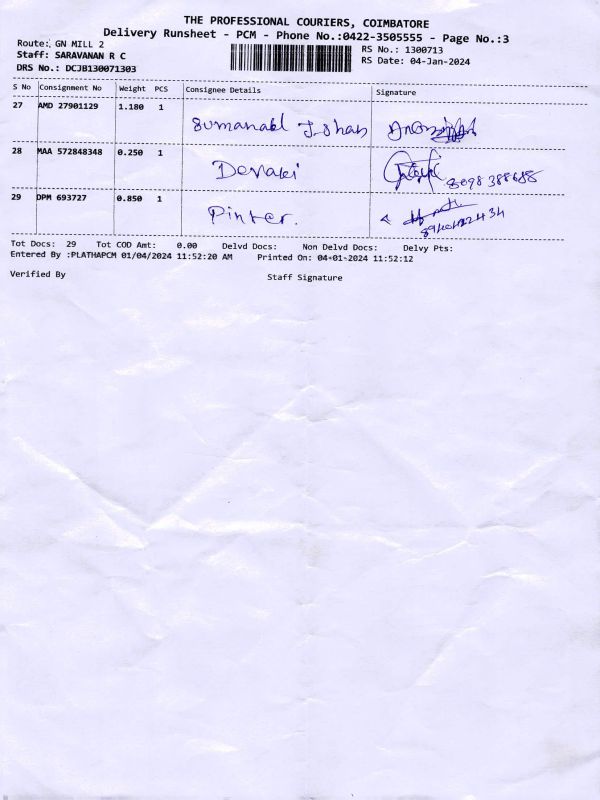 THE PROFESSIONAL COURIERS, COIMBATORE
Delivery Runsheet - PCM - Phone No.:0422-3505555 - Page No.:3
Route: GN MILL 2
RS No.: 1300713
Staff: SARAVANAN R C
RS Date: 04-Jan-2024
DRS No.: DCJB130071303
S No Consignment No Weight PCS Consignee Details Signature
27 AMD 27901129 1.180 1
28 MAA 572848348 0.250 1 Devaki
29 DPM 693727 0.850 1
Tot Docs: 29 Tot COD Amt: 0.00 Delvd Docs: Non Delvd Docs: Delvy Pts:
Entered By :PLATHAPCM 01/04/2024 11:52:20 AM Printed On: 04-01-2024 11:52:12
Verified By Staff Signature